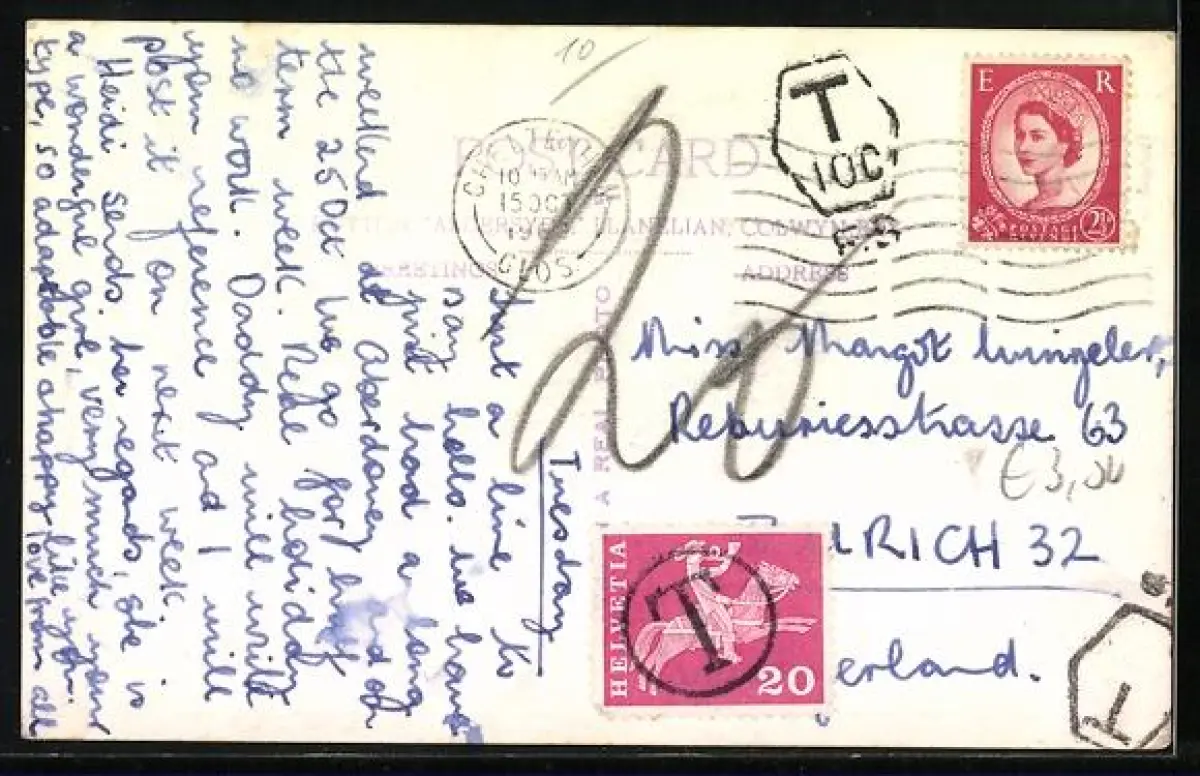 Tuesday
Just a line to
say hello. We have
just had a long
weekend at Aberdovey and on
the 25 Oct we go for half
term week. Real holiday
no work. Daddy will write
your reference and I will
post it on next week.
Heidi sends her regards, she is
a wonderful girl, very much your
type, so adaptable & happy like you.
love from all
10
POST CARD
LLANELIAN, COLWYN BAY
GREETINGS
ADDRESS
A REAL PHOTO
CHELTENHAM
10 AM
15 OCT
19
GLOS
T
10C
F.B
E R
POSTAGE
REVENUE
2½
20
Miss Margot Wingeler,
Rebwiesstrasse 63
€3,00
RICH 32
erland.
HELVETIA
T
20
T